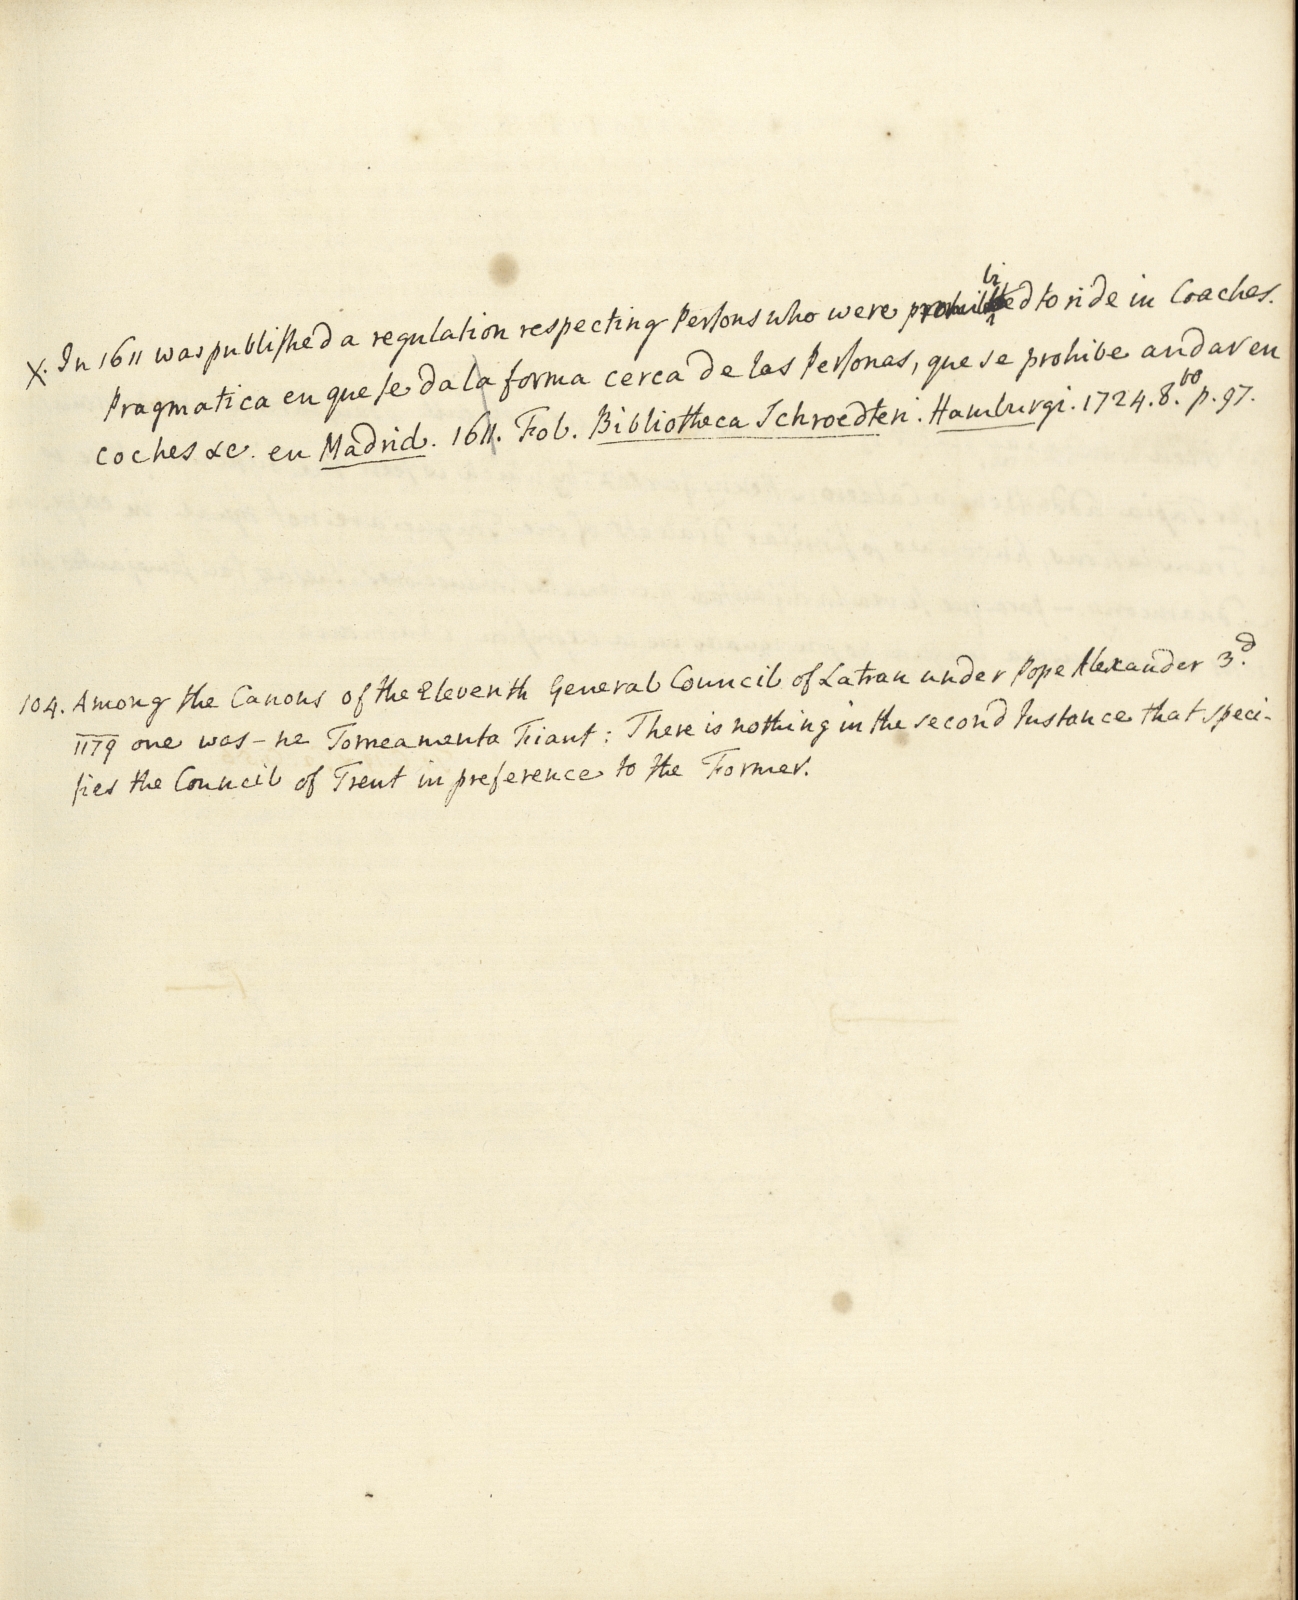 X. In 1611 was publiſhed a regulation respecting Perſons who were prohibited to ride in Coaches.
Pragmatica en que ſe da la forma cerca de las Perſonas, que se prohibe andar en
coches &c. en Madrid. 1611. Fol. Bibliotheca Schroedteri. Hamburgi. 1724. 8.vo p. 97.
104. Among the Canons of the Eleventh General Council of Latran under Pope Alexander 3.d
1179 one was – ne Torneamenta Fiant: There is nothing in the second Instance that speci-
fies the Council of Trent in preference to the Former.